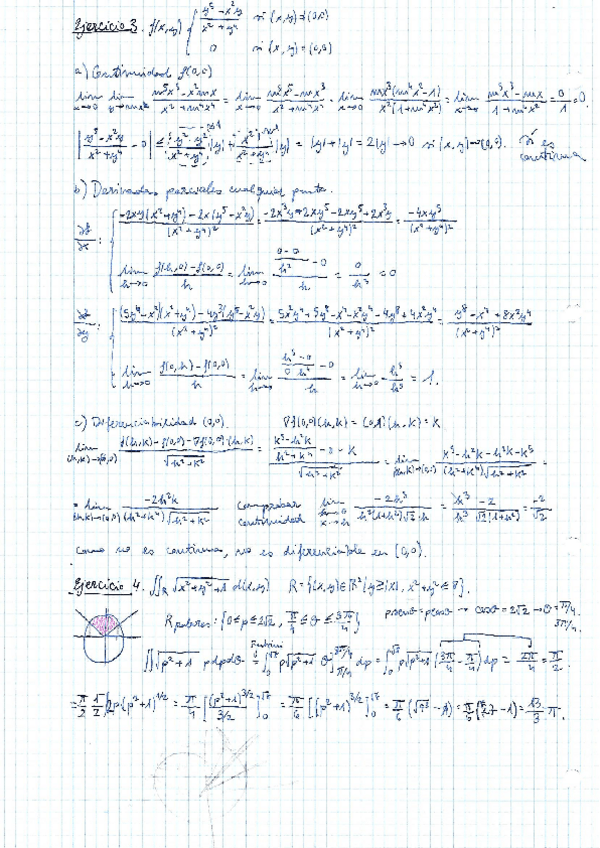 Ejercicio 3. f(x,y) { (y⁵ - x²y)/(x² + y⁴) si (x,y) ≠ (0,0)
0 si (x,y) = (0,0)
a) Continuidad f(0,0)
lim x→0 lim y→mx (m⁵x⁵ - x²mx)/(x² + m⁴x⁴) = lim x→0 (m⁵x⁵ - mx³)/(x² + m⁴x⁴) = lim x→0 mx³(m⁴x² - 1)/(x²(1 + m⁴x²)) = lim x→0 (m⁵x³ - mx)/(1 + m⁴x²) = 0/1 = 0.
|(y⁵ - x²y)/(x² + y⁴) - 0| ≤ |y| + |y| = 2|y| → 0 si (x,y) → (0,0). Sí es continua
b) Derivadas parciales cualquier punto.
∂f/∂x: { (-2xy(x² + y⁴) - 2x(y⁵ - x²y))/(x² + y⁴)² = (-2x³y - 2xy⁵ - 2xy⁵ + 2x³y)/(x² + y⁴)² = -4xy⁵/(x² + y⁴)²
lim h→0 (f(h,0) - f(0,0))/h = lim h→0 ((0 - 0)/h² - 0)/h = 0/h³ = 0
∂f/∂y: { ((5y⁴ - x²)(x² + y⁴) - 4y³(y⁵ - x²y))/(x² + y⁴)² = (5x²y⁴ + 5y⁸ - x⁴ - x²y⁴ - 4y⁸ + 4x²y⁴)/(x² + y⁴)² = (y⁸ - x⁴ + 8x²y⁴)/(x² + y⁴)²
lim h→0 (f(0,h) - f(0,0))/h = lim h→0 ((h⁵ - 0)/(0 h⁴) - 0)/h = lim h→0 h⁵/h⁵ = 1.
c) Diferenciabilidad (0,0). ∇f(0,0)(h,k) = (0,1)(h,k) = k
lim (h,k)→(0,0) (f(h,k) - f(0,0) - ∇f(0,0)·(h,k))/√(h² + k²) = ((k⁵ - h²k)/(h² + k⁴) - 0 - k)/√(h² + k²) = lim (h,k)→(0,0) (k⁵ - h²k - h²k - k⁵)/((h² + k⁴)√(h² + k²)) =
= lim (h,k)→(0,0) -2h²k/((h² + k⁴)√(h² + k²)) comprobar continuidad lim h→0 k→h -2h³/(h²(1 + h²)√2·h) = h³ · -2/(h³ √2(1 + h²)) = -2/√2
como no es continua, no es diferenciable en (0,0).
Ejercicio 4. ∬R √(x² + y² + 1) d(x,y) R = {(x,y) ∈ ℝ² / y ≥ |x|, x² + y² ≤ 8}.
R polares: {0 ≤ ρ ≤ 2√2, π/4 ≤ θ ≤ 3π/4} ρ senθ = ρ cosθ → θ = π/4, 3π/4.
∬ √(ρ² + 1) ρ dρ dθ Fubini = ρ√(ρ² + 1) θ]π/4 3π/4 dρ = ρ√(ρ² + 1) (3π/4 - π/4) dρ = 2π/4 = π/2
= π/2 · 1/2 ∫ 2ρ(ρ² + 1)^1/2 = π/4 [(ρ² + 1)^3/2 / 3/2] = π/6 [(ρ² + 1)^3/2]